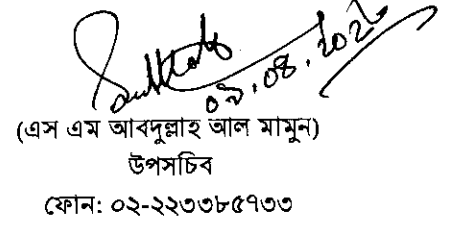 ০৯.০৪.২০২৬
(এস এম আবদুল্লাহ আল মামুন)
উপসচিব
ফোন: ০২-২২৩৩৮৫৭৩৩